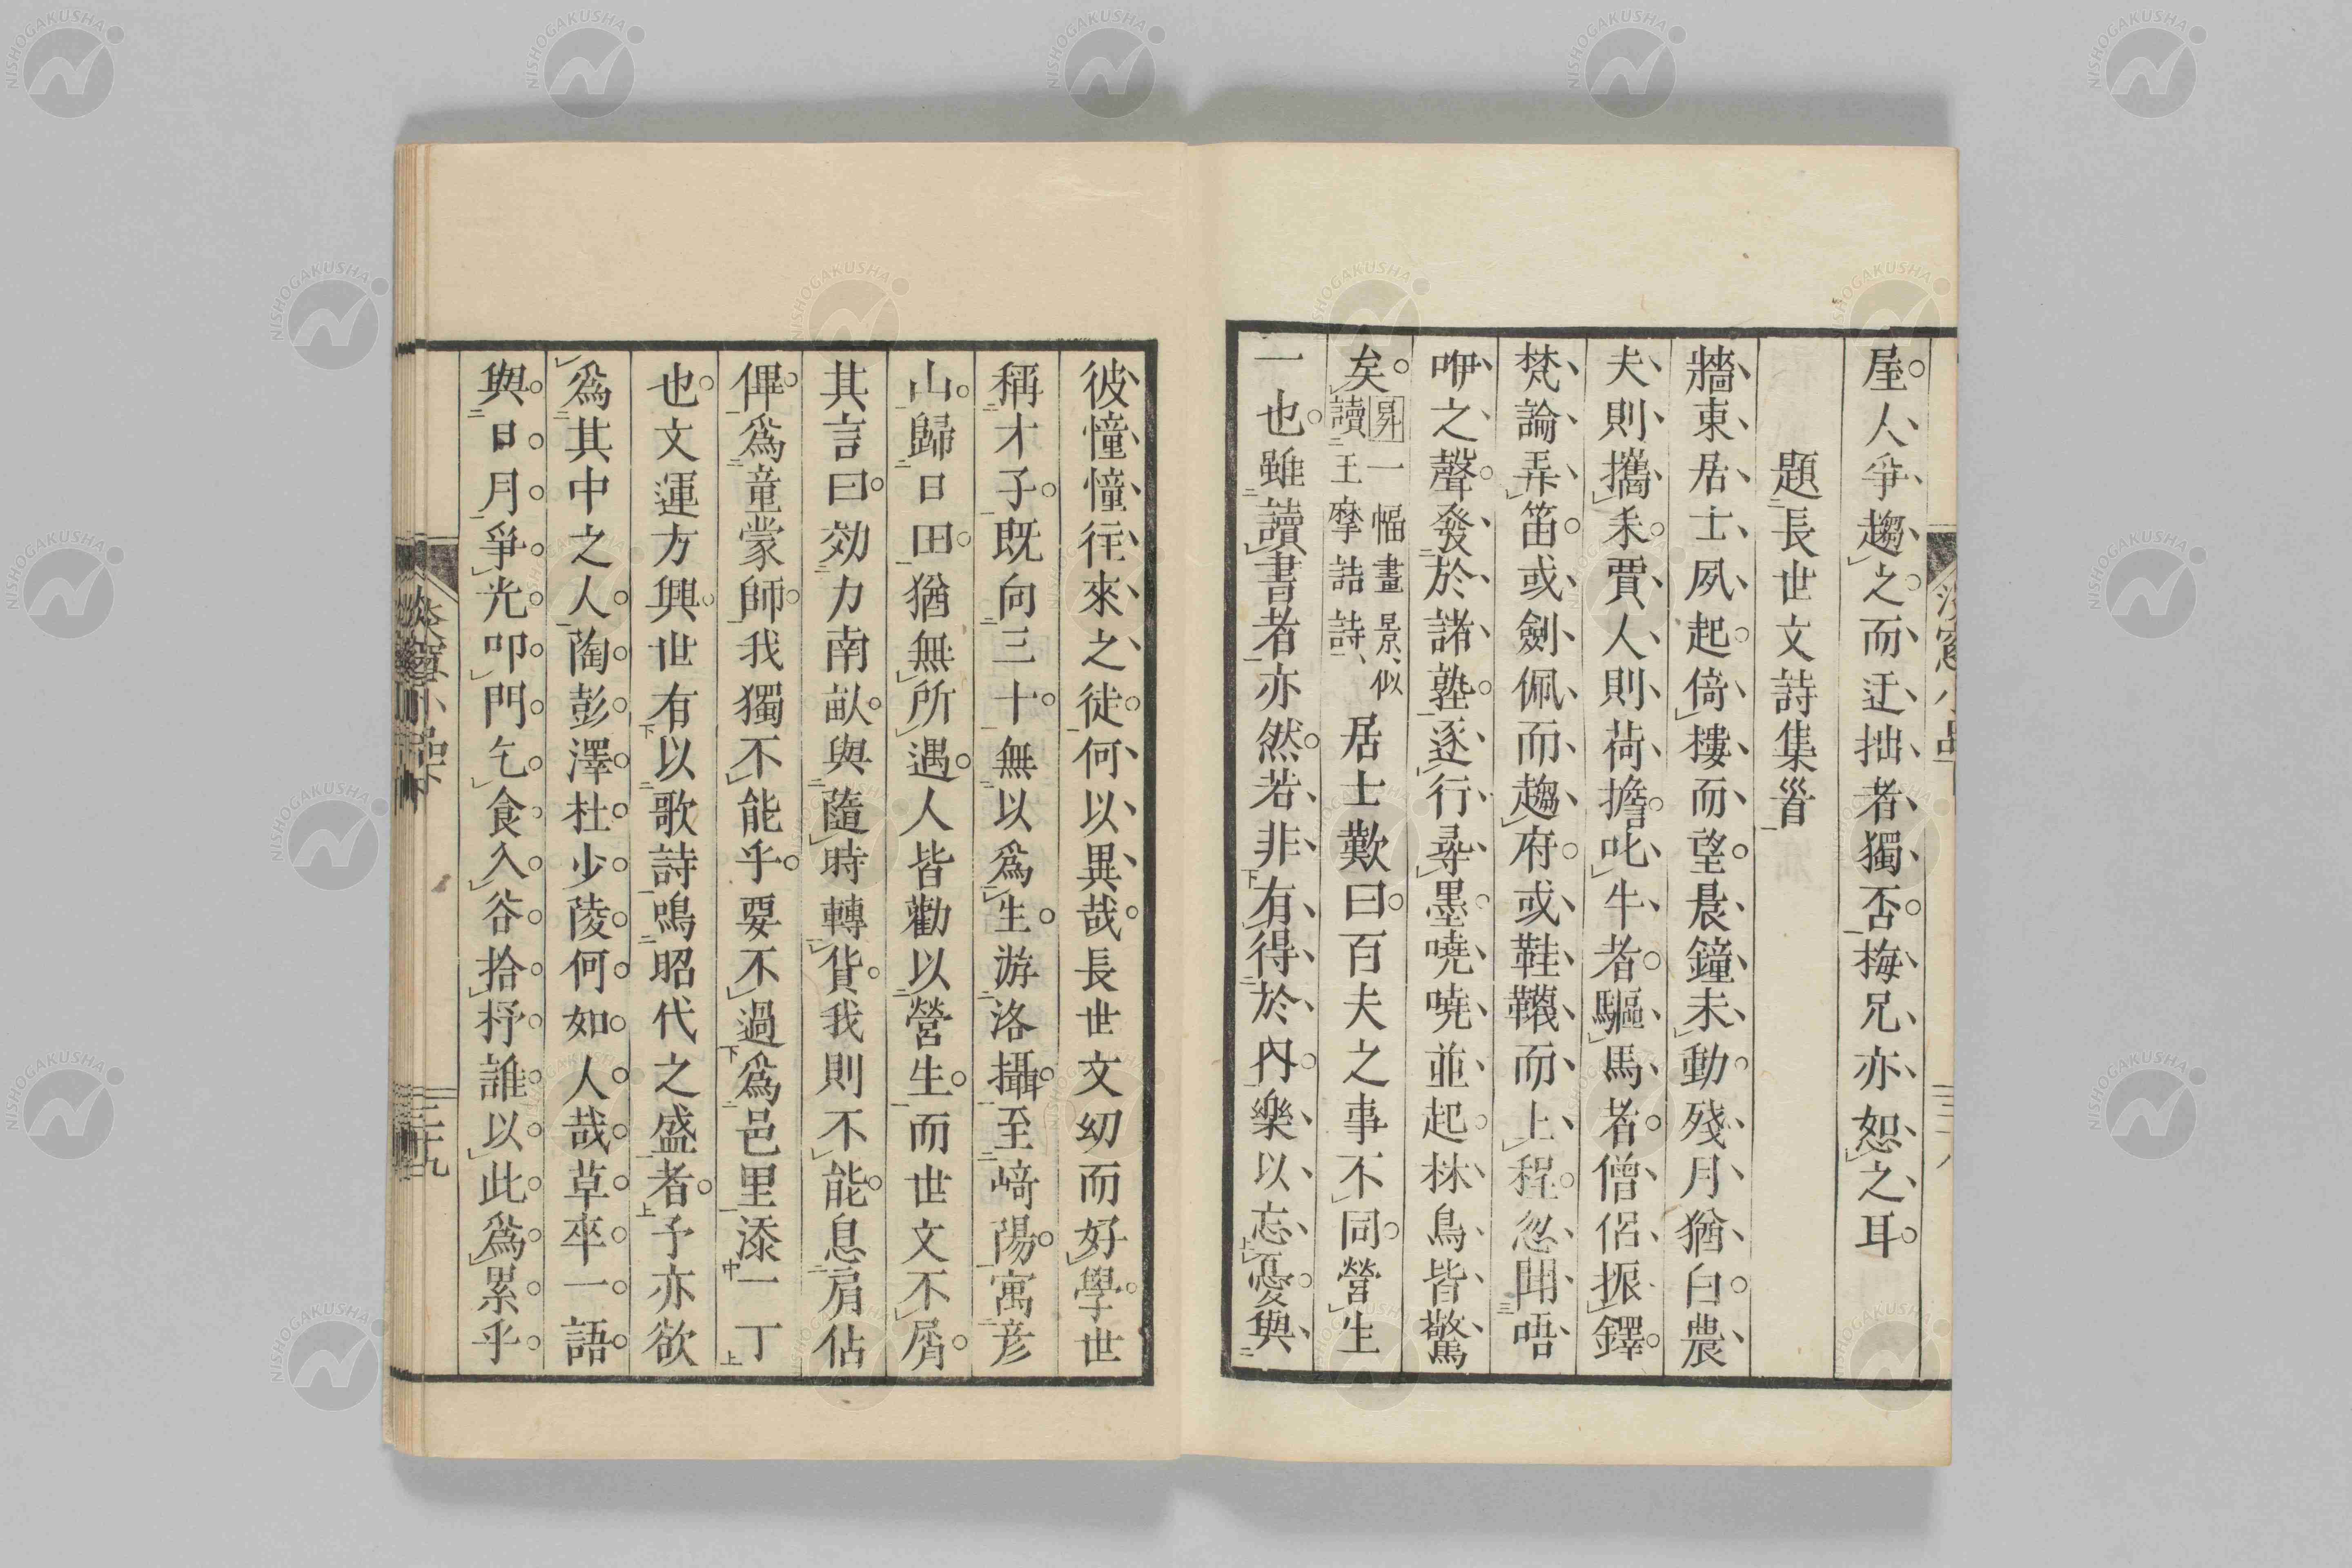 屋人爭趨之而迂拙者獨否梅兄亦恕之耳
題長世文詩集首
牆東居士夙起倚樓而望晨鐘未動殘月猶白農
夫則攜耒賈人則荷擔叱牛者驅馬者僧侶振鐸
梵論弄笛或劍佩而趨府或鞋韈而上程忽聞唔
咿之聲發於諸塾逐行尋墨嘵嘵並起林鳥皆驚
矣昇一幅畫景似讀王摩詰詩居士歎曰百夫之事不同營生
一也雖讀書者亦然若非有得於內樂以忘憂與
彼憧憧往來之徒何以異哉長世文幼而好學世
稱才子既向三十無以爲生游洛攝至﨑陽寓彦
山歸日田猶無所遇人皆勸以營生而世文不屑
其言曰效力南畝與隨時轉貨我則不能息肩佔
俾爲童蒙師我獨不能乎要不過爲邑里添一丁
也文運方興世有以歌詩鳴昭代之盛者予亦欲
爲其中之人陶彭澤杜少陵何如人哉草卒一語
與日月爭光叩門乞食入谷拾杼誰以此爲累乎
三十九
NISHOGAKUSHA